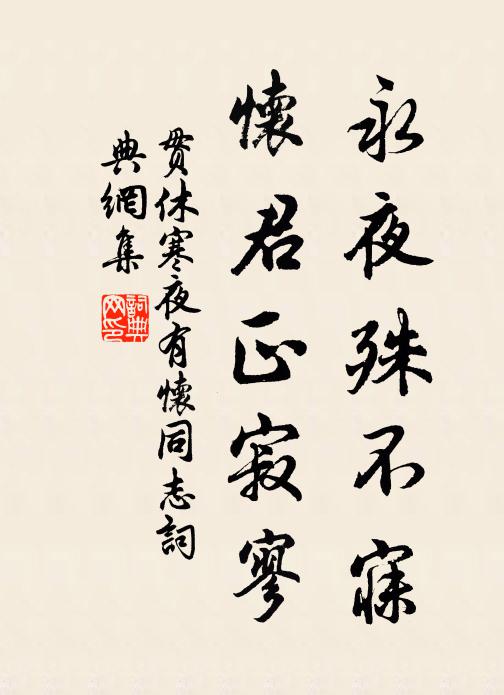 永夜殊不寐
懷君正寂寥
貫休寒夜有懷同志詞
典網集
詞典网印